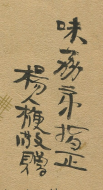 味房弟指正
楊人楩敬贈